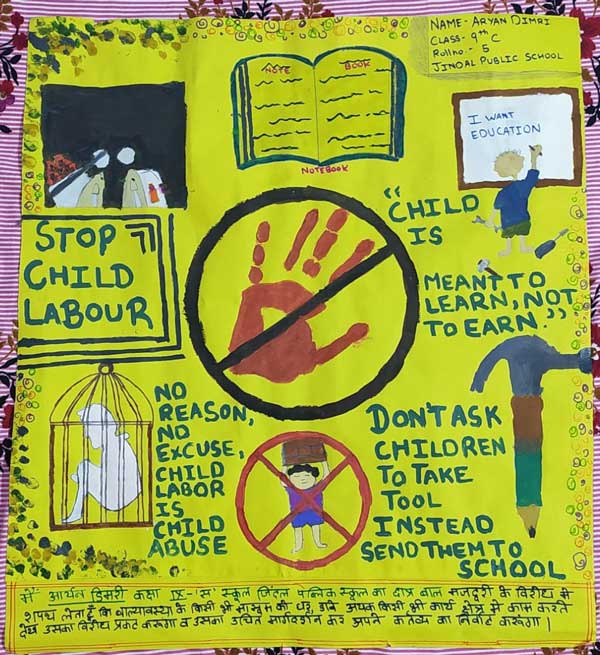 NAME- ARYAN DIMRI
CLASS- 9th C
Rollno- 5
JINDAL PUBLIC SCHOOL
NOTE BOOK
NOTEBOOK
I WANT
EDUCATION
STOP
CHILD
LABOUR
"CHILD
IS
MEANT TO
LEARN, NOT
TO EARN."
NO
REASON,
NO
EXCUSE,
CHILD
LABOR
IS
CHILD
ABUSE
DON'T ASK
CHILDREN
TO TAKE
TOOL
INSTEAD
SEND THEM TO
SCHOOL
मैं आर्यन डिमरी कक्षा IX-'स' स्कूल जिंदल पब्लिक स्कूल का छात्र बाल मजदूरी के विरोध में
शपथ लेता हूँ कि बाल्यावस्था के किसी भी मासूम को घर, ढाबे अथवा किसी भी कार्य क्षेत्र में काम करते
देख उसका विरोध प्रकट करूंगा व उसका उचित मार्गदर्शन कर अपने कर्तव्य का निर्वाह करूंगा।